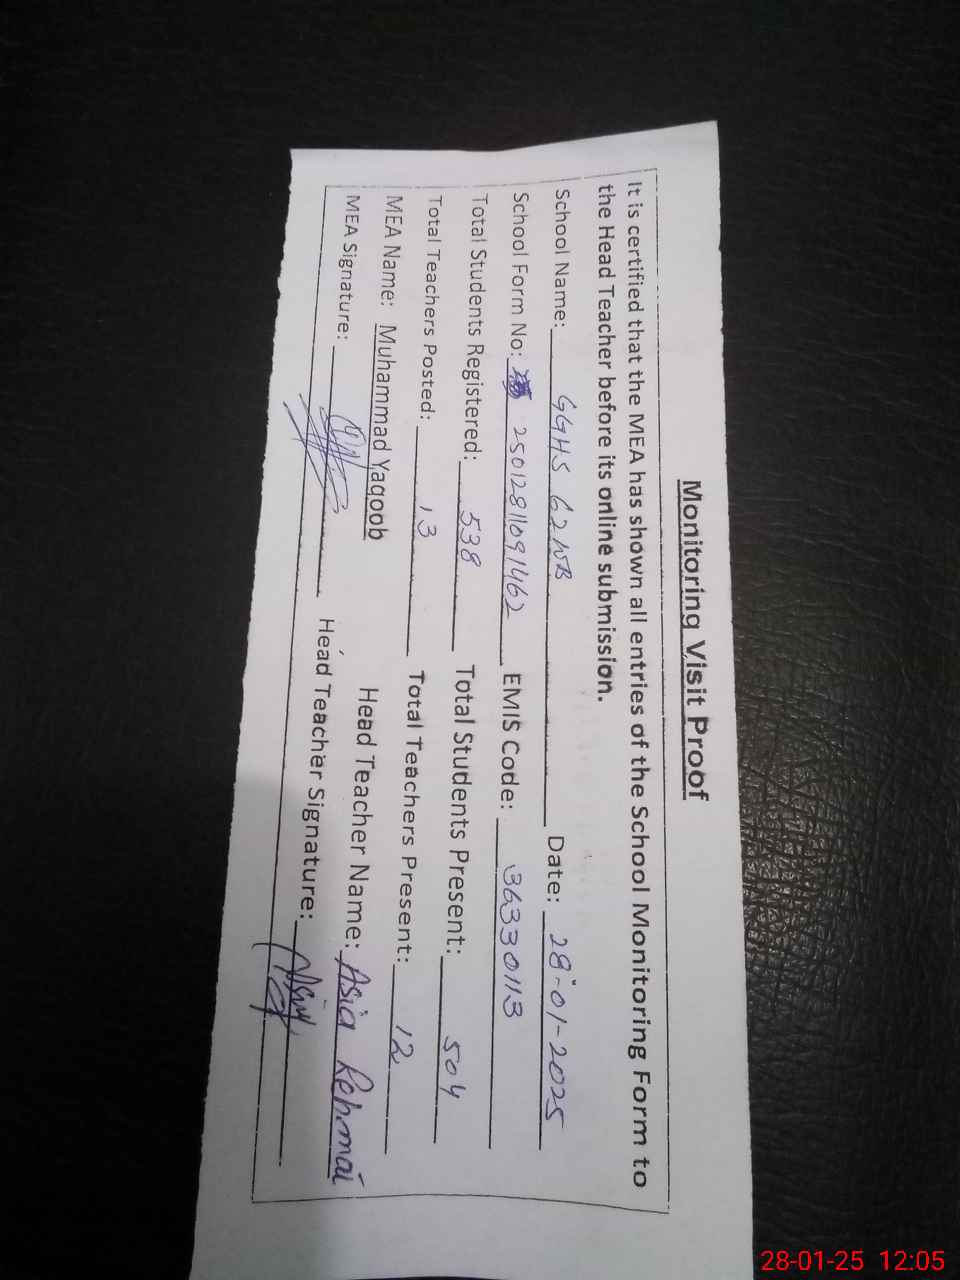 Monitoring Visit Proof
It is certified that the MEA has shown all entries of the School Monitoring Form to
the Head Teacher before its online submission.
School Name: GGHS 62WB Date: 28-01-2025
School Form No: 25012811091462 EMIS Code: 36330113
Total Students Registered: 538 Total Students Present: 504
Total Teachers Posted: 13 Total Teachers Present: 12
MEA Name: Muhammad Yaqoob Head Teacher Name: Asia Rehmat
MEA Signature: Head Teacher Signature:
28-01-25 12:05